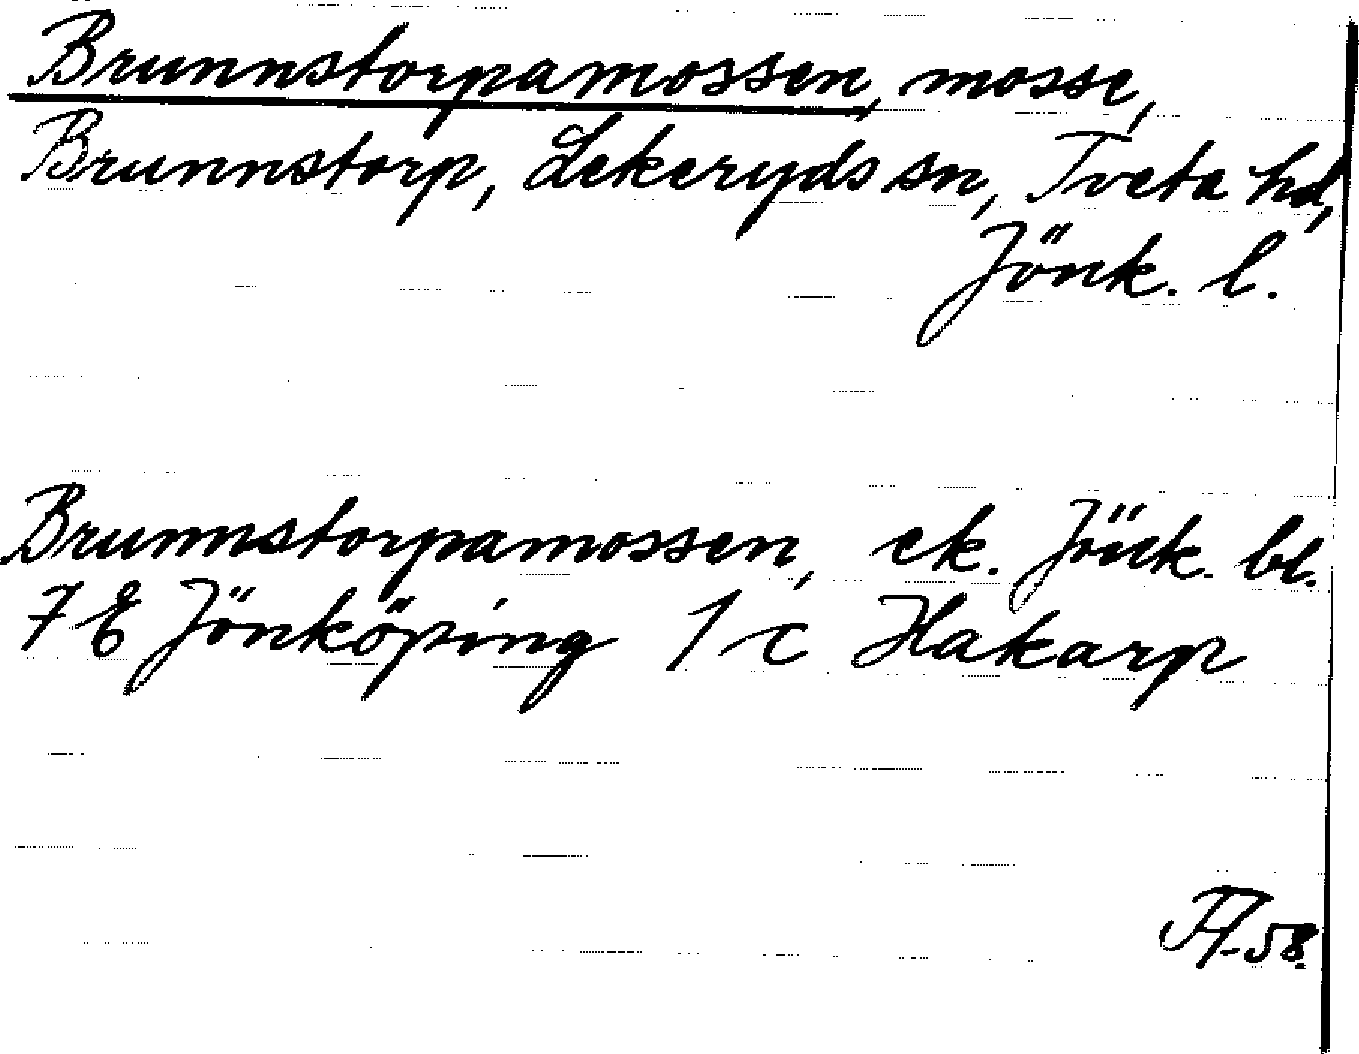 Brunnstorpamossen, mosse,
Brunnstorp, Lekeryds sn, Tveta hd,
Jönk. l.
Brunnstorpamossen, ek. Jönk. bl.
7 E Jönköping 1 c Hakarp
-58.